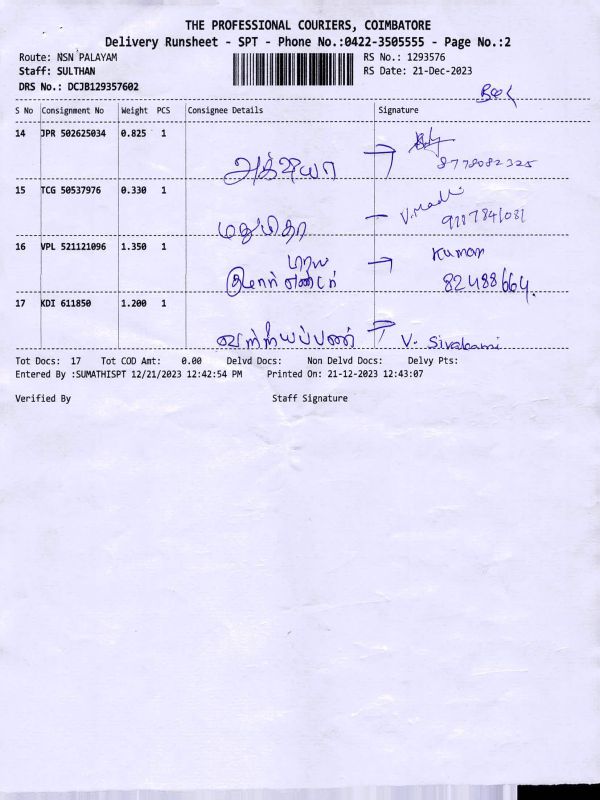 THE PROFESSIONAL COURIERS, COIMBATORE
Delivery Runsheet - SPT - Phone No.:0422-3505555 - Page No.:2
Route: NSN PALAYAM RS No.: 1293576
Staff: SULTHAN RS Date: 21-Dec-2023
DRS No.: DCJB129357602
S No Consignment No Weight PCS Consignee Details Signature
14 JPR 502625034 0.825 1
8778082325
15 TCG 50537976 0.330 1
மதுமிதா V.Madhi
16 VPL 521121096 1.350 1
Kumar
82488664.
17 KDI 611850 1.200 1
V. Sivakami
Tot Docs: 17 Tot COD Amt: 0.00 Delvd Docs: Non Delvd Docs: Delvy Pts:
Entered By :SUMATHISPT 12/21/2023 12:42:54 PM Printed On: 21-12-2023 12:43:07
Verified By Staff Signature